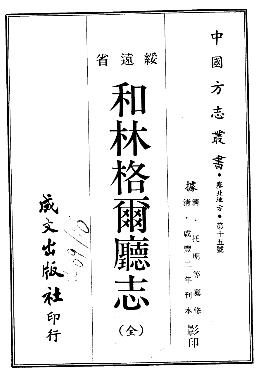 中國方志叢書・塞北地方・第十五號
據清・託明等纂修
清・咸豐二年刊本影印
綏遠省
和林格爾廳志
(全)
成文出版社印行